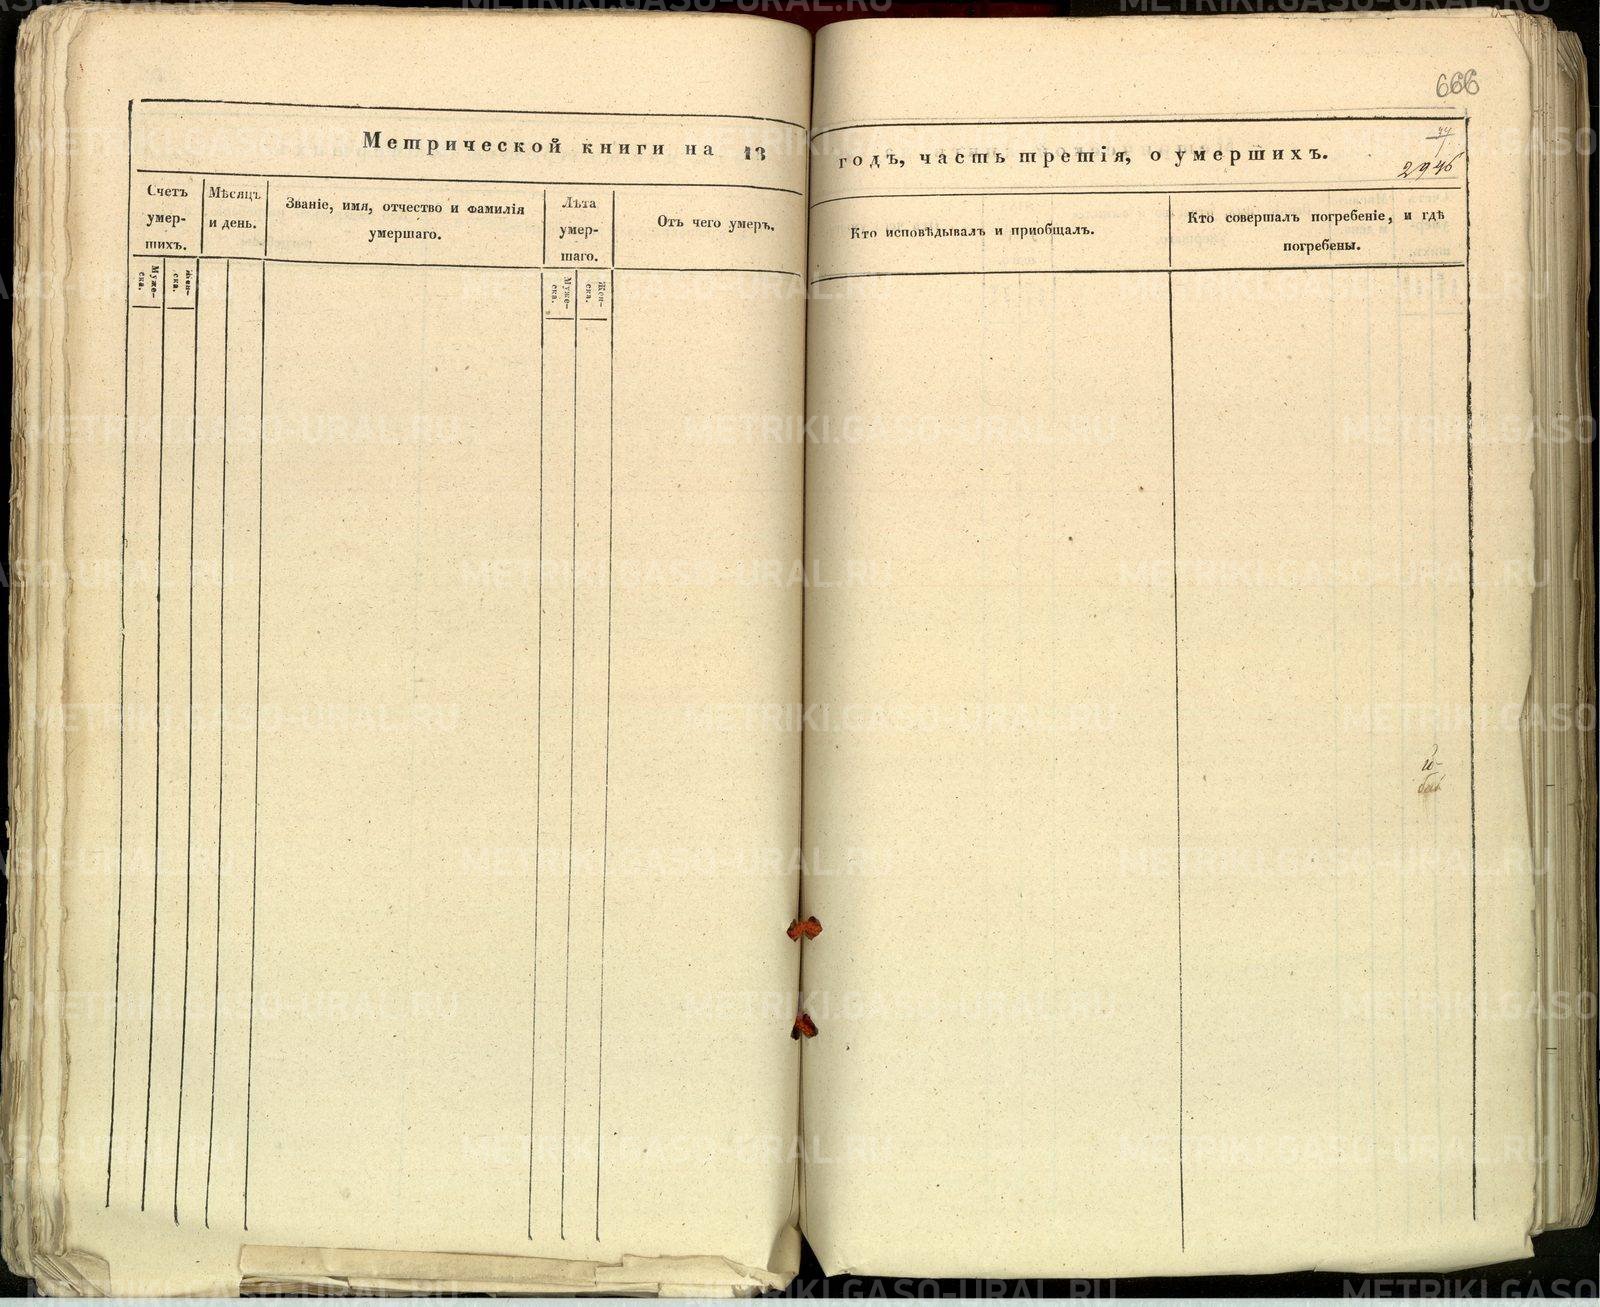 666
Метрической книги на 18
годъ, часть третія, о умершихъ.
2946
Счетъ
умер-
шихъ.
Мѣсяцъ
и день.
Званіе, имя, отчество и фамилія
умершаго.
Лѣта
умер-
шаго.
Отъ чего умеръ.
Кто исповѣдывалъ и приобщалъ.
Кто совершалъ погребеніе, и гдѣ
погребены.
Муже-
ска.
Жен-
ска.
Муже-
ска.
Жен-
ска.
METRIKI.GASO-URAL.RU